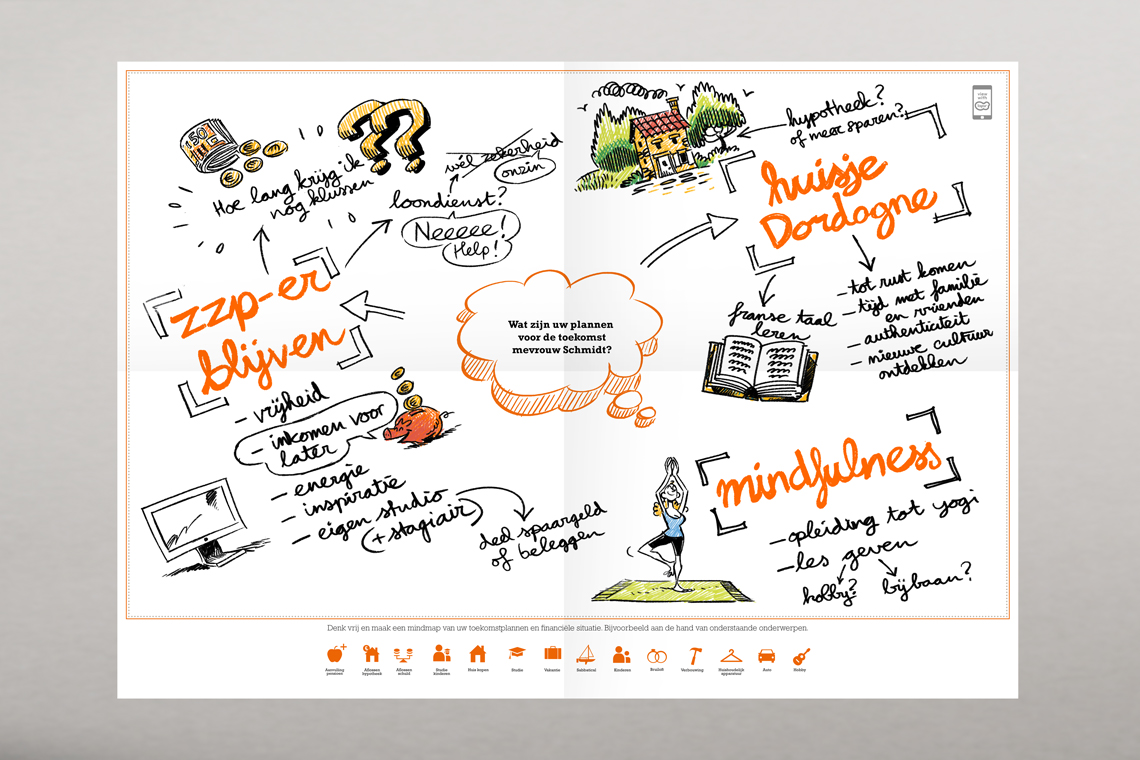 150
Hoe lang krijg ik
nog klussen
??
wél zekerheid
onzin
loondienst?
Neeeee!
Help!
zzp-er
blijven
- vrijheid
- inkomen voor
later
- energie
- inspiratie
- eigen studio
(+ stagiair)
deel spaargeld
of beleggen
Wat zijn uw plannen
voor de toekomst
mevrouw Schmidt?
hypotheek?
of meer sparen?
huisje
Dordogne
franse taal
leren
- tot rust komen
- tijd met familie
en vrienden
- authenticiteit
- nieuwe cultuur
ontdekken
mindfulness
- opleiding tot yogi
- les geven
hobby?
bijbaan?
Denk vrij en maak een mindmap van uw toekomstplannen en financiële situatie. Bijvoorbeeld aan de hand van onderstaande onderwerpen.
Aanvulling
pensioen
Aflossen
hypotheek
Aflossen
schuld
Studie
kinderen
Huis kopen
Studie
Vakantie
Sabbatical
Kinderen
Bruiloft
Verbouwing
Huishoudelijk
apparatuur
Auto
Hobby